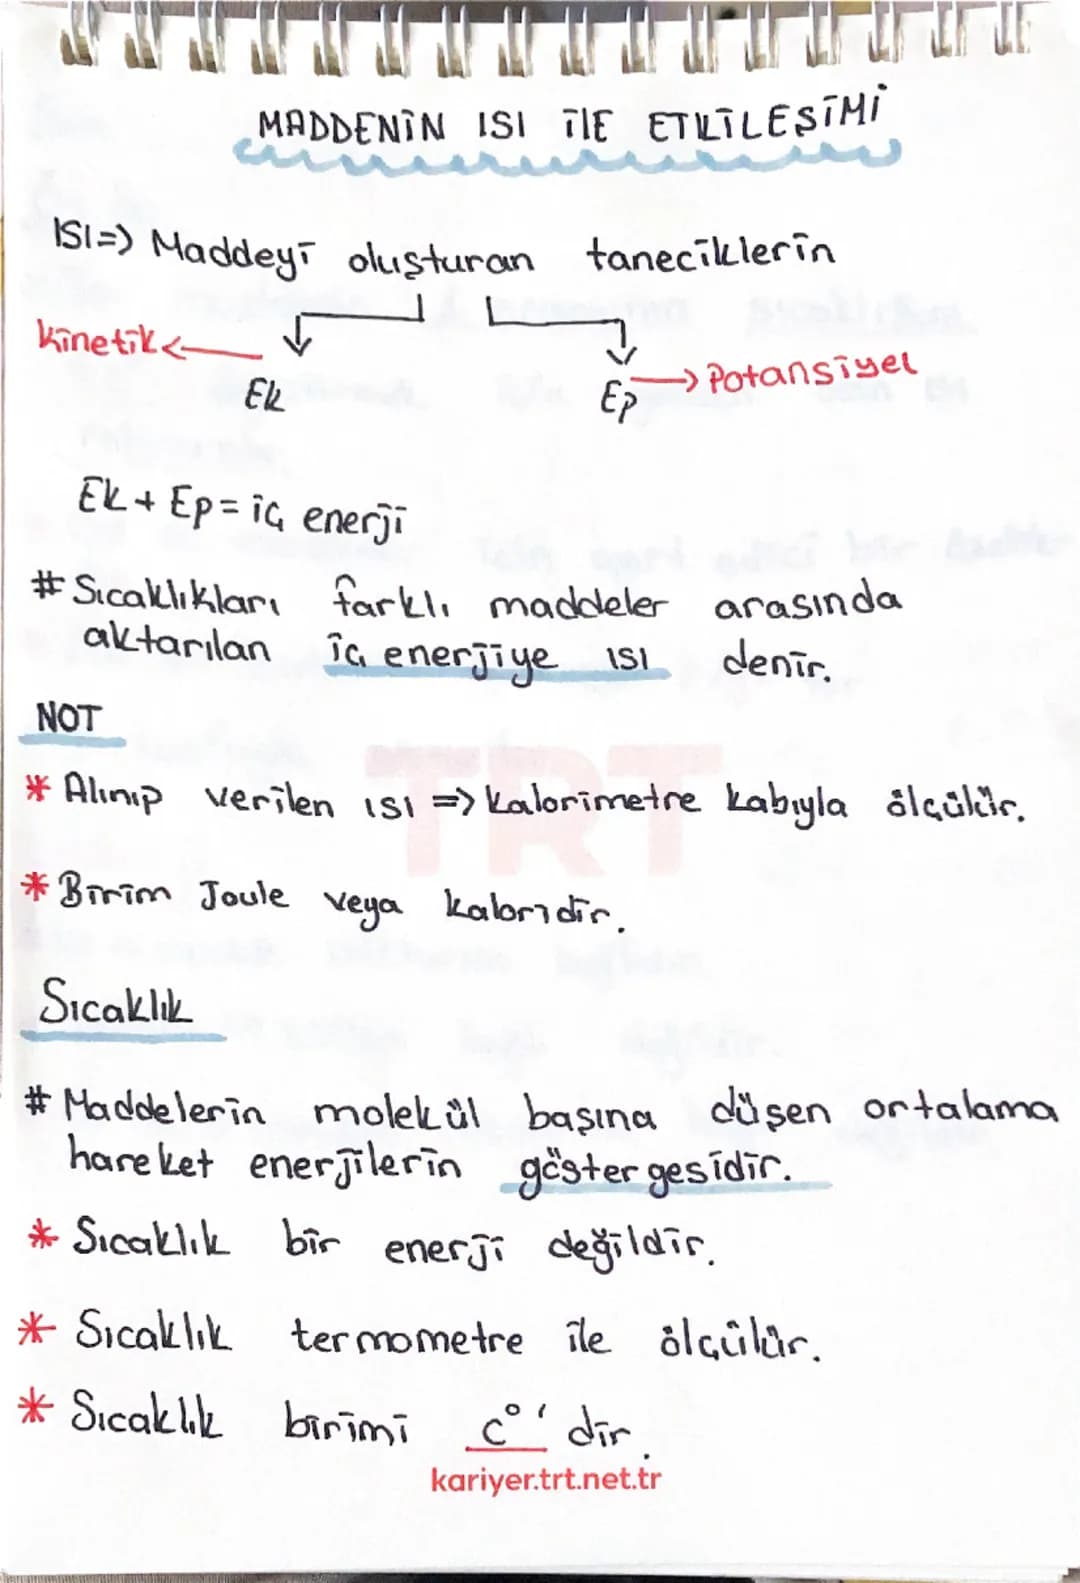 MADDENİN ISI İLE ETKİLEŞİMİ
ISI=> Maddeyi oluşturan taneciklerin
kinetik
Ek
Ep
Potansiyel
Ek + Ep = iç enerji
# Sıcaklıkları farklı maddeler arasında
aktarılan iç enerjiye ısı denir.
NOT
TRT
* Alınıp verilen ısı => kalorimetre kabıyla ölçülür.
* Birim Joule veya kaloridir.
Sıcaklık
# Maddelerin molekül başına düşen ortalama
hareket enerjilerin göstergesidir.
* Sıcaklık bir enerji değildir.
* Sıcaklık termometre ile ölçülür.
* Sıcaklık birimi c°' dir.
kariyer.trt.net.tr